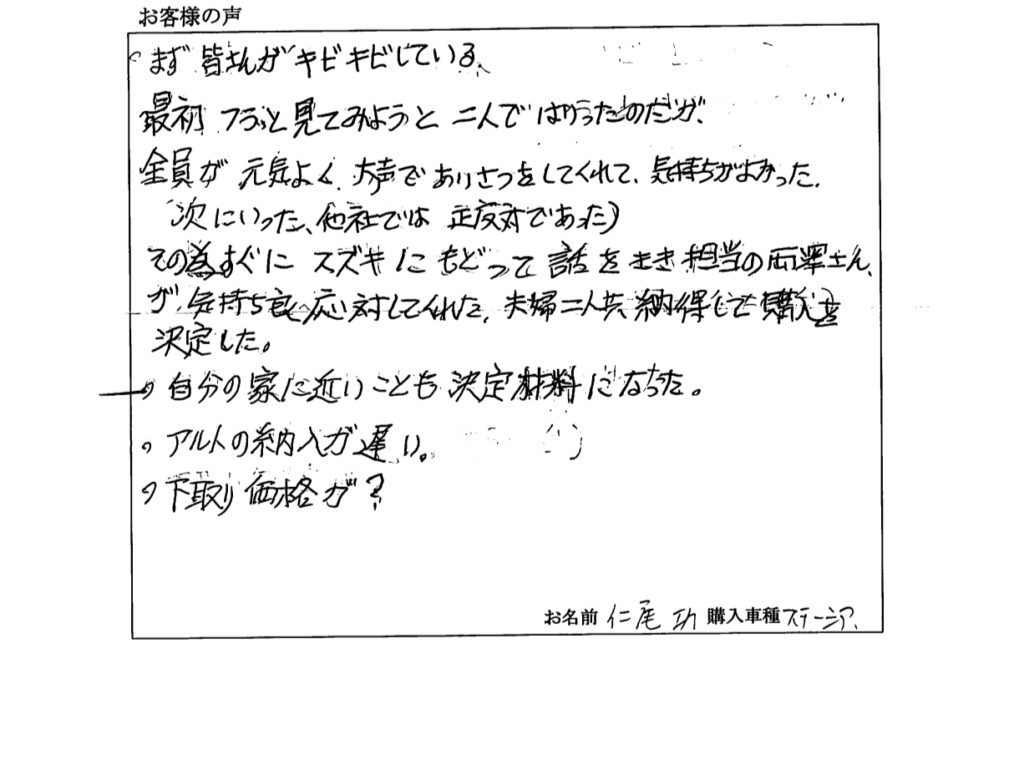 お客様の声
。まず 皆さんがキビキビしている、
最初 フラっと見てみようと 二人で はいったのだが、
全員が 元気よく、大声であいさつをしてくれて、気持ちがよかった。
(次にいった、他社では 正反対であった)
その為すぐに スズキにもどって 話をきき 担当の西澤さん、
が、気持ち良く応対してくれた、夫婦二人共、納得して購入を
決定した。
。自分の家に近いことも 決定材料になった。
。アルトの納入が遅い。
。下取り価格が?
お名前 仁尾 功 購入車種 ステーシア